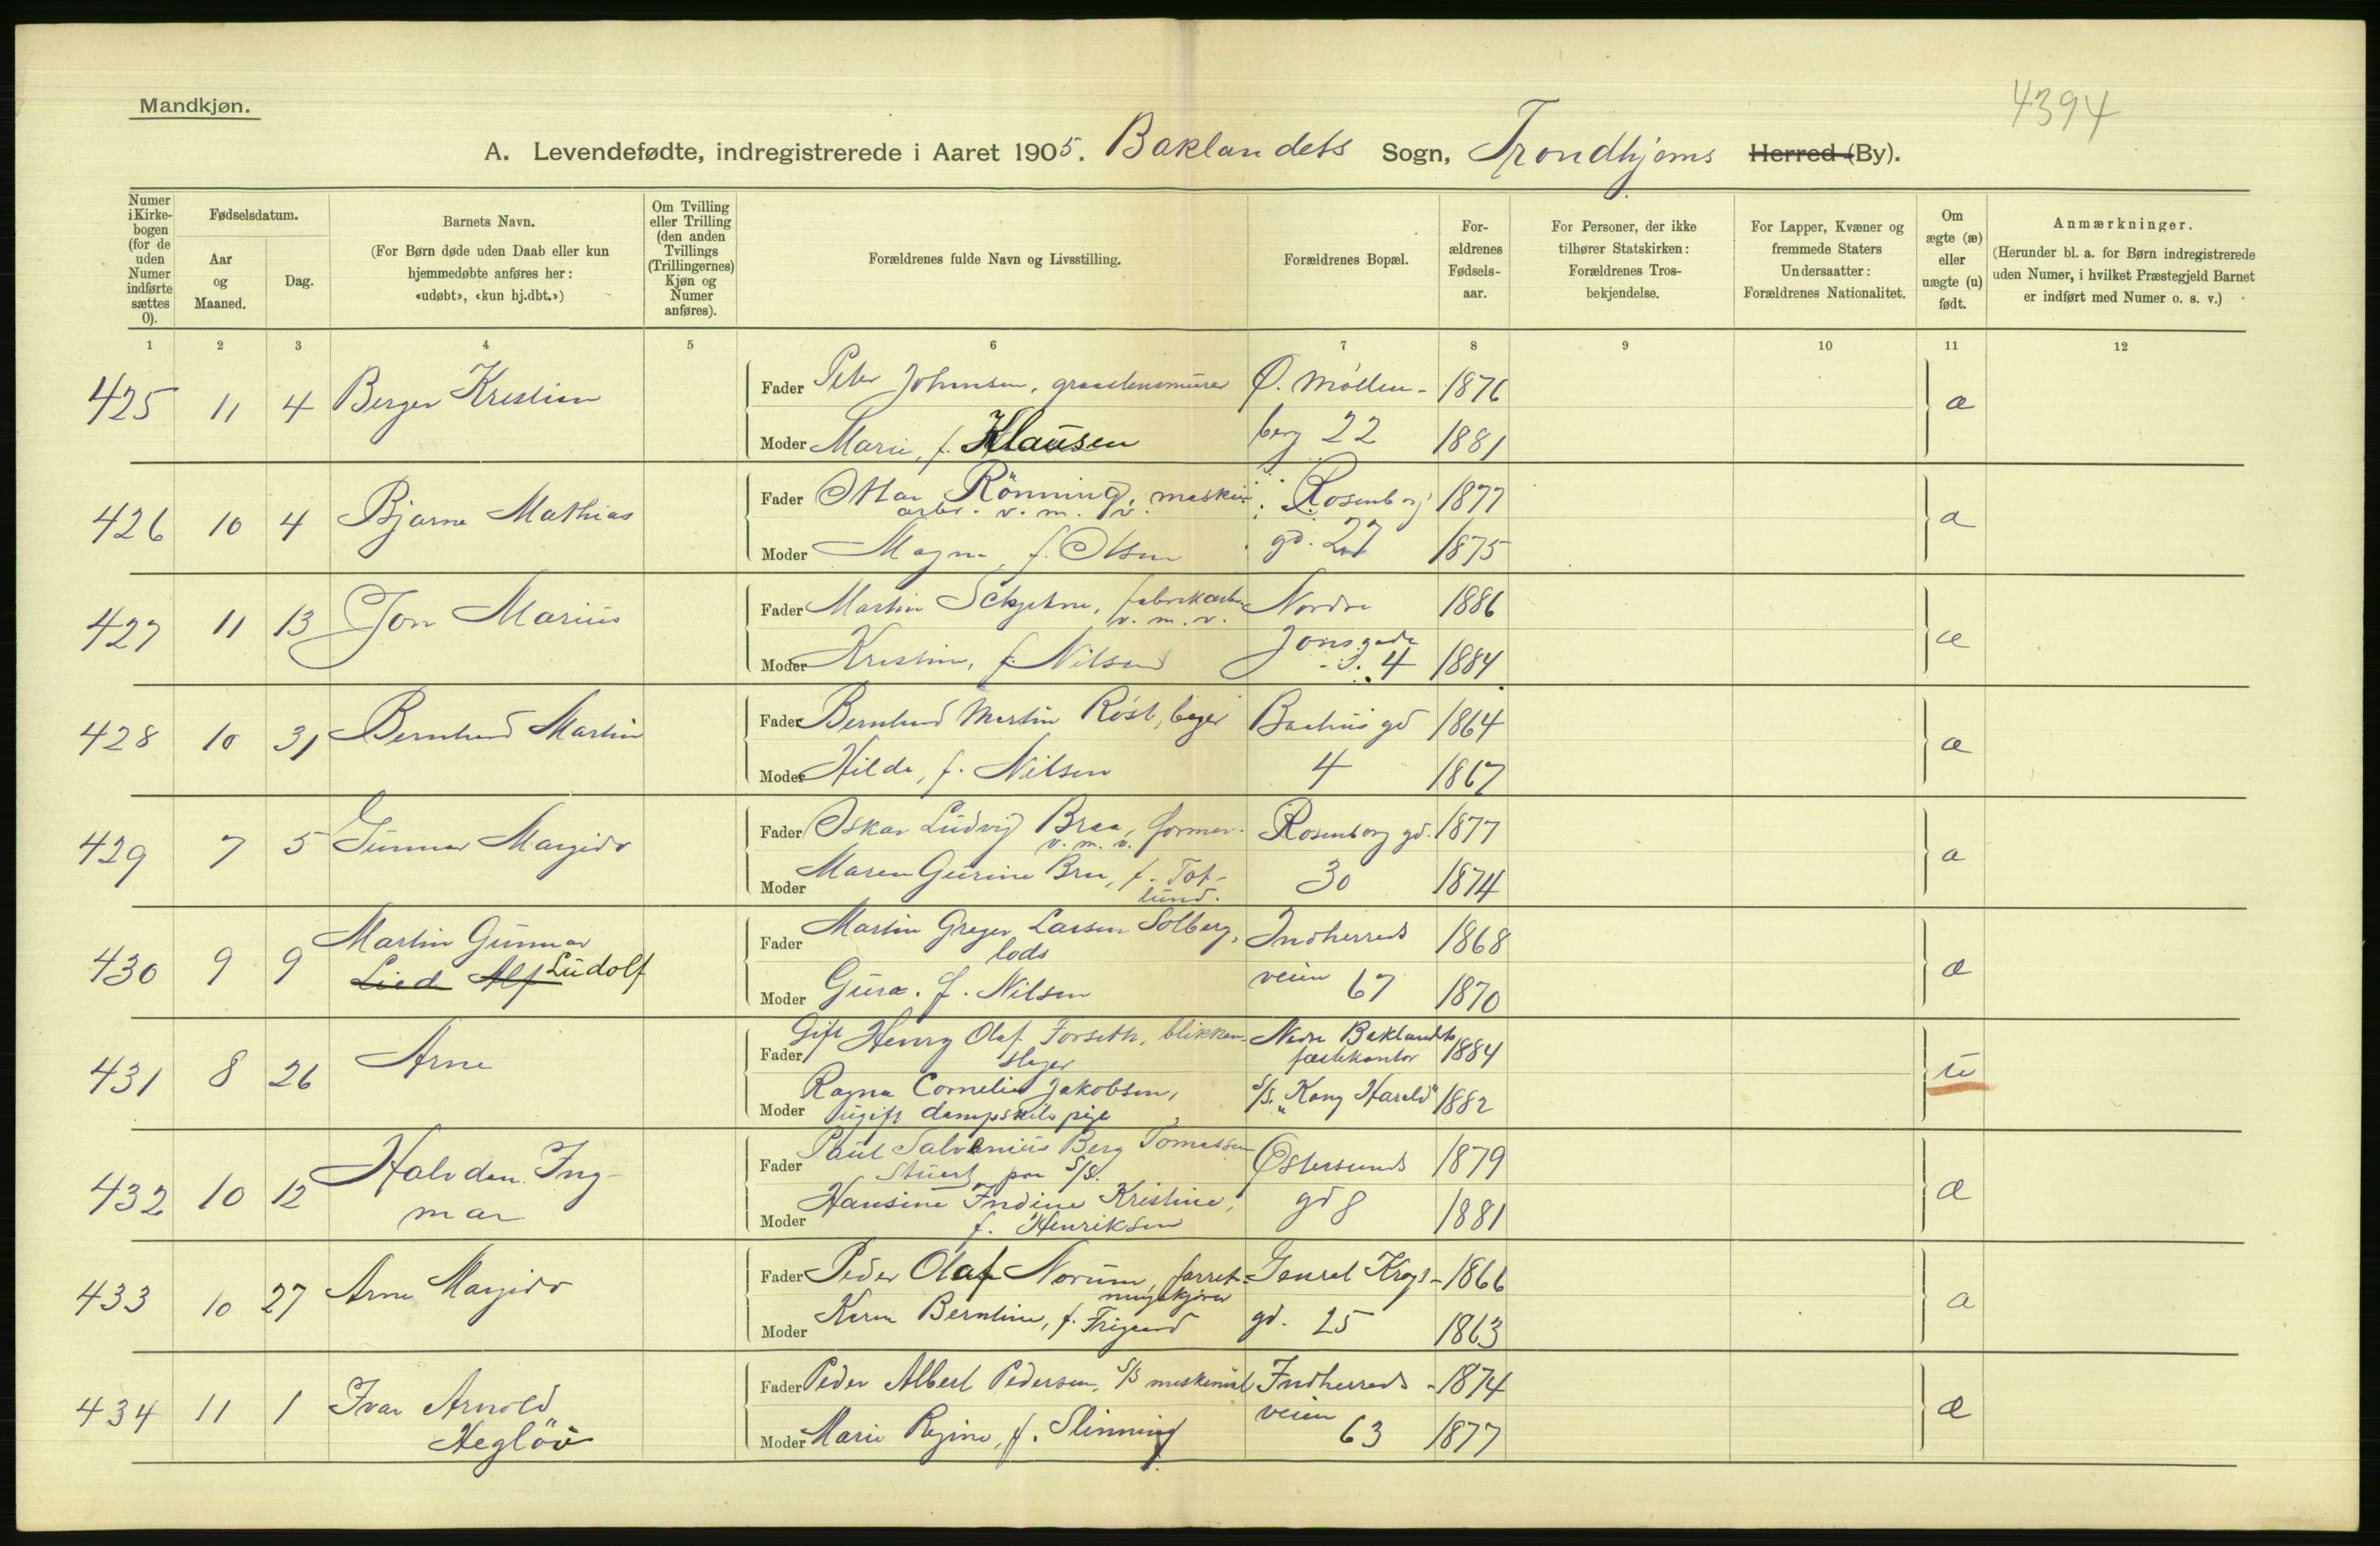 Mandkjøn.
4394
A. Levendefødte, indregistrerede i Aaret 1905. Baklandets Sogn, Trondhjems Herred (By).
Numer i Kirkebogen (for de uden Numer indførte sættes 0).
Fødselsdatum.
Aar og Maaned.
Dag.
Barnets Navn.
(For Børn døde uden Daab eller kun hjemmedøbte anføres her: «udøbt», «kun hj.dbt.»)
Om Tvilling eller Trilling (den anden Tvillings (Trillingernes) Kjøn og Numer anføres).
Forældrenes fulde Navn og Livsstilling.
Forældrenes Bopæl.
Forældrenes Fødselsaar.
For Personer, der ikke tilhører Statskirken: Forældrenes Trosbekjendelse.
For Lapper, Kvæner og fremmede Staters Undersaatter: Forældrenes Nationalitet.
Om ægte (æ) eller uægte (u) født.
Anmærkninger.
(Herunder bl. a. for Børn indregistrerede uden Numer, i hvilket Præstegjeld Barnet er indført med Numer o. s. v.)
1 2 3 4 5 6 7 8 9 10 11 12
425 11 4 Berger Kristian Fader Peter Johnsen, graastensmurer Ø. Möllen- 1876 æ
Moder Marie, f. Klausen berg 22 1881
426 10 4 Bjarne Mathias Fader Ottar Rönning, maskin- Rosenborg 1877 æ
arbr. v. m. v.
Moder Magna, f. Olsen gd. 27 1875
427 11 13 Jon Marius Fader Martin Schjetne, fabrikarb. Nordre 1886 æ
v. m. v.
Moder Kristine, f. Nilsen Jonsgade 4 1884
428 10 31 Bernhard Martin Fader Bernhard Martin Röst, bager Bachus gd 1864 æ
Moder Hilda, f. Nilsen 4 1867
429 7 5 Gunnar Margido Fader Oskar Ludvig Braa, former Rosenborg gd. 1877 æ
v. m. v.
Moder Maren Gurine Bru, f. Tof- 30 1874
lund.
430 9 9 Martin Gunnar Fader Martin Greger Larsen Solberg, Indherreds 1868 æ
Ludolf lods
Moder Gura. f. Nilsen veien 67 1870
431 8 26 Arne Fader Gift Henry Olaf Forseth, blikken- Nedre Baklandets 1884 u
slager fæstekontor
Moder Ragna Cornelia Jakobsen, S/S. "Kong Harald" 1882
ugift dampskibspige
432 10 12 Halvdan Ing- Fader Paul Salvenius Berg Tomassen Østersunds 1879 æ
mar Stuert paa S/S.
Moder Hansine Indine Kristine, gd 8 1881
f. Henriksen
433 10 27 Arne Margido Fader Peder Olaf Norum, forret- General Krogs- 1866 æ
ningskjører
Moder Karen Berntine, f. Frigaard gd. 25 1863
434 11 1 Ivar Arnold Fader Peder Albert Pedersen, S/S maskinist Indherreds- 1874 æ
Moder Marie Regine, f. Slinning veien 63 1877